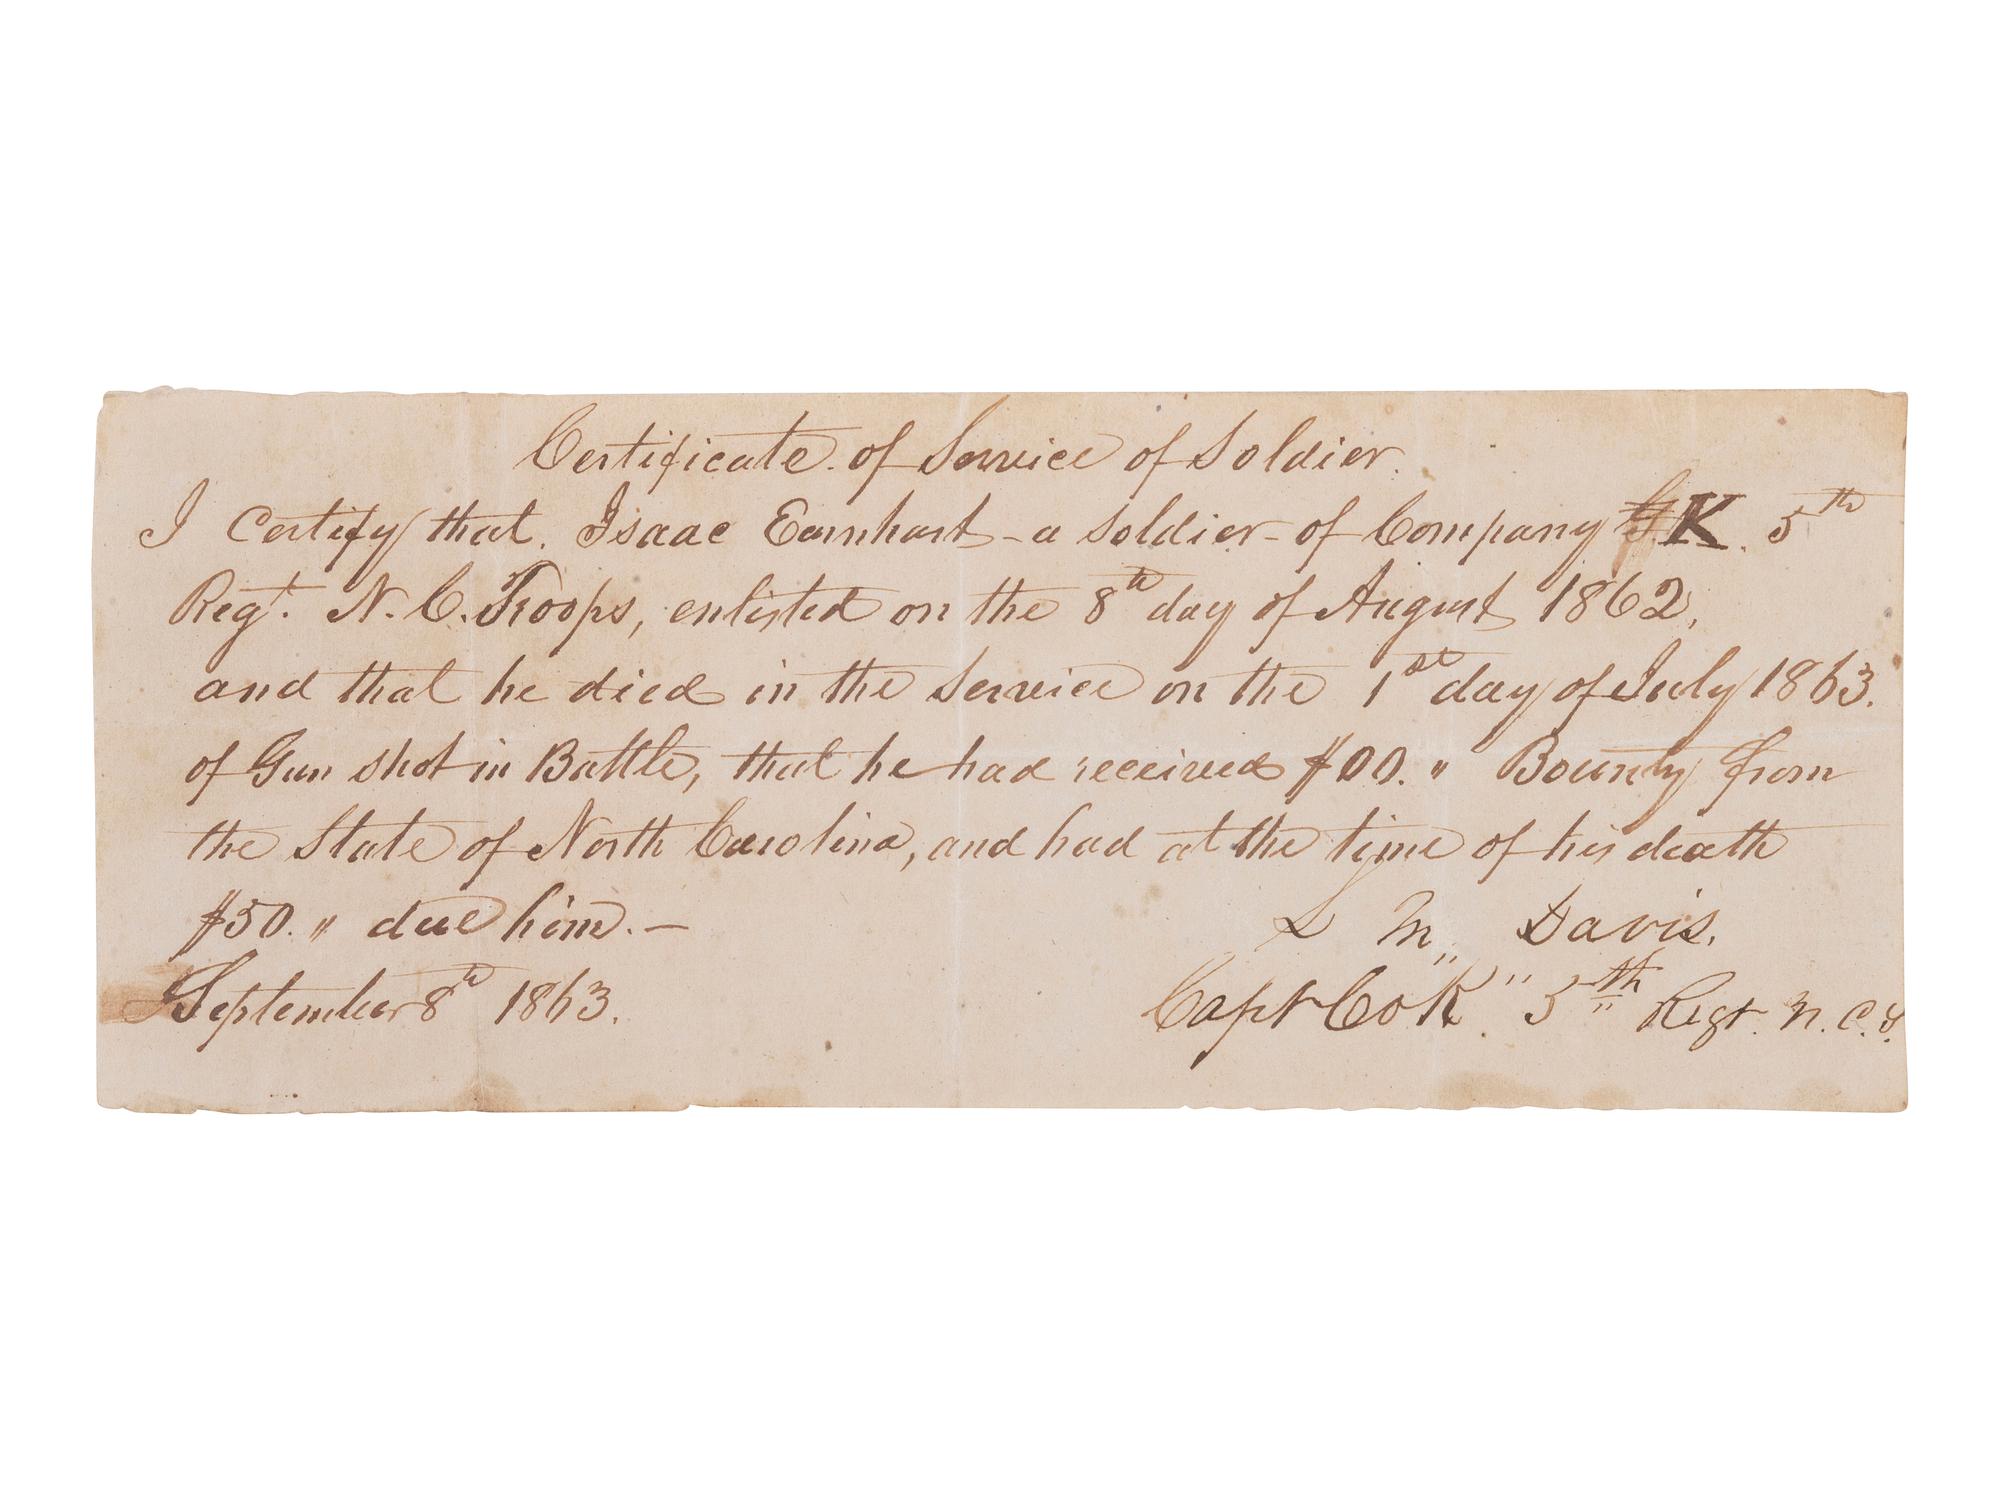 Certificate of Service of Soldier.
I Certify that, Isaac Earnhart - a soldier - of Company K. 5th
Regt. N. C. Troops, enlisted on the 8th day of August 1862,
and that he died in the Service on the 1st day of July 1863.
of Gun shot in Battle, that he had received $00. " Bounty from
the State of North Carolina, and had at the time of his death
$50. " due him. —
L M,, Davis.
September 8th 1863.
Capt Co K" 5th Regt. N. C. T.